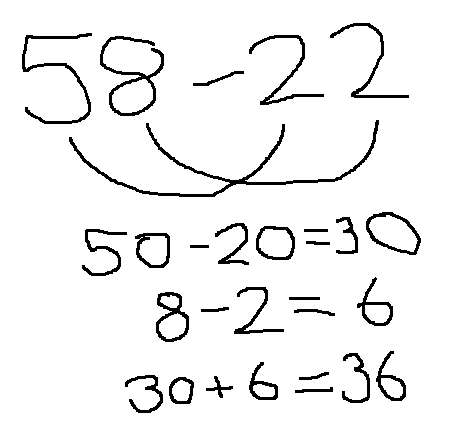 58-22
50-20=30
8-2=6
30+6=36